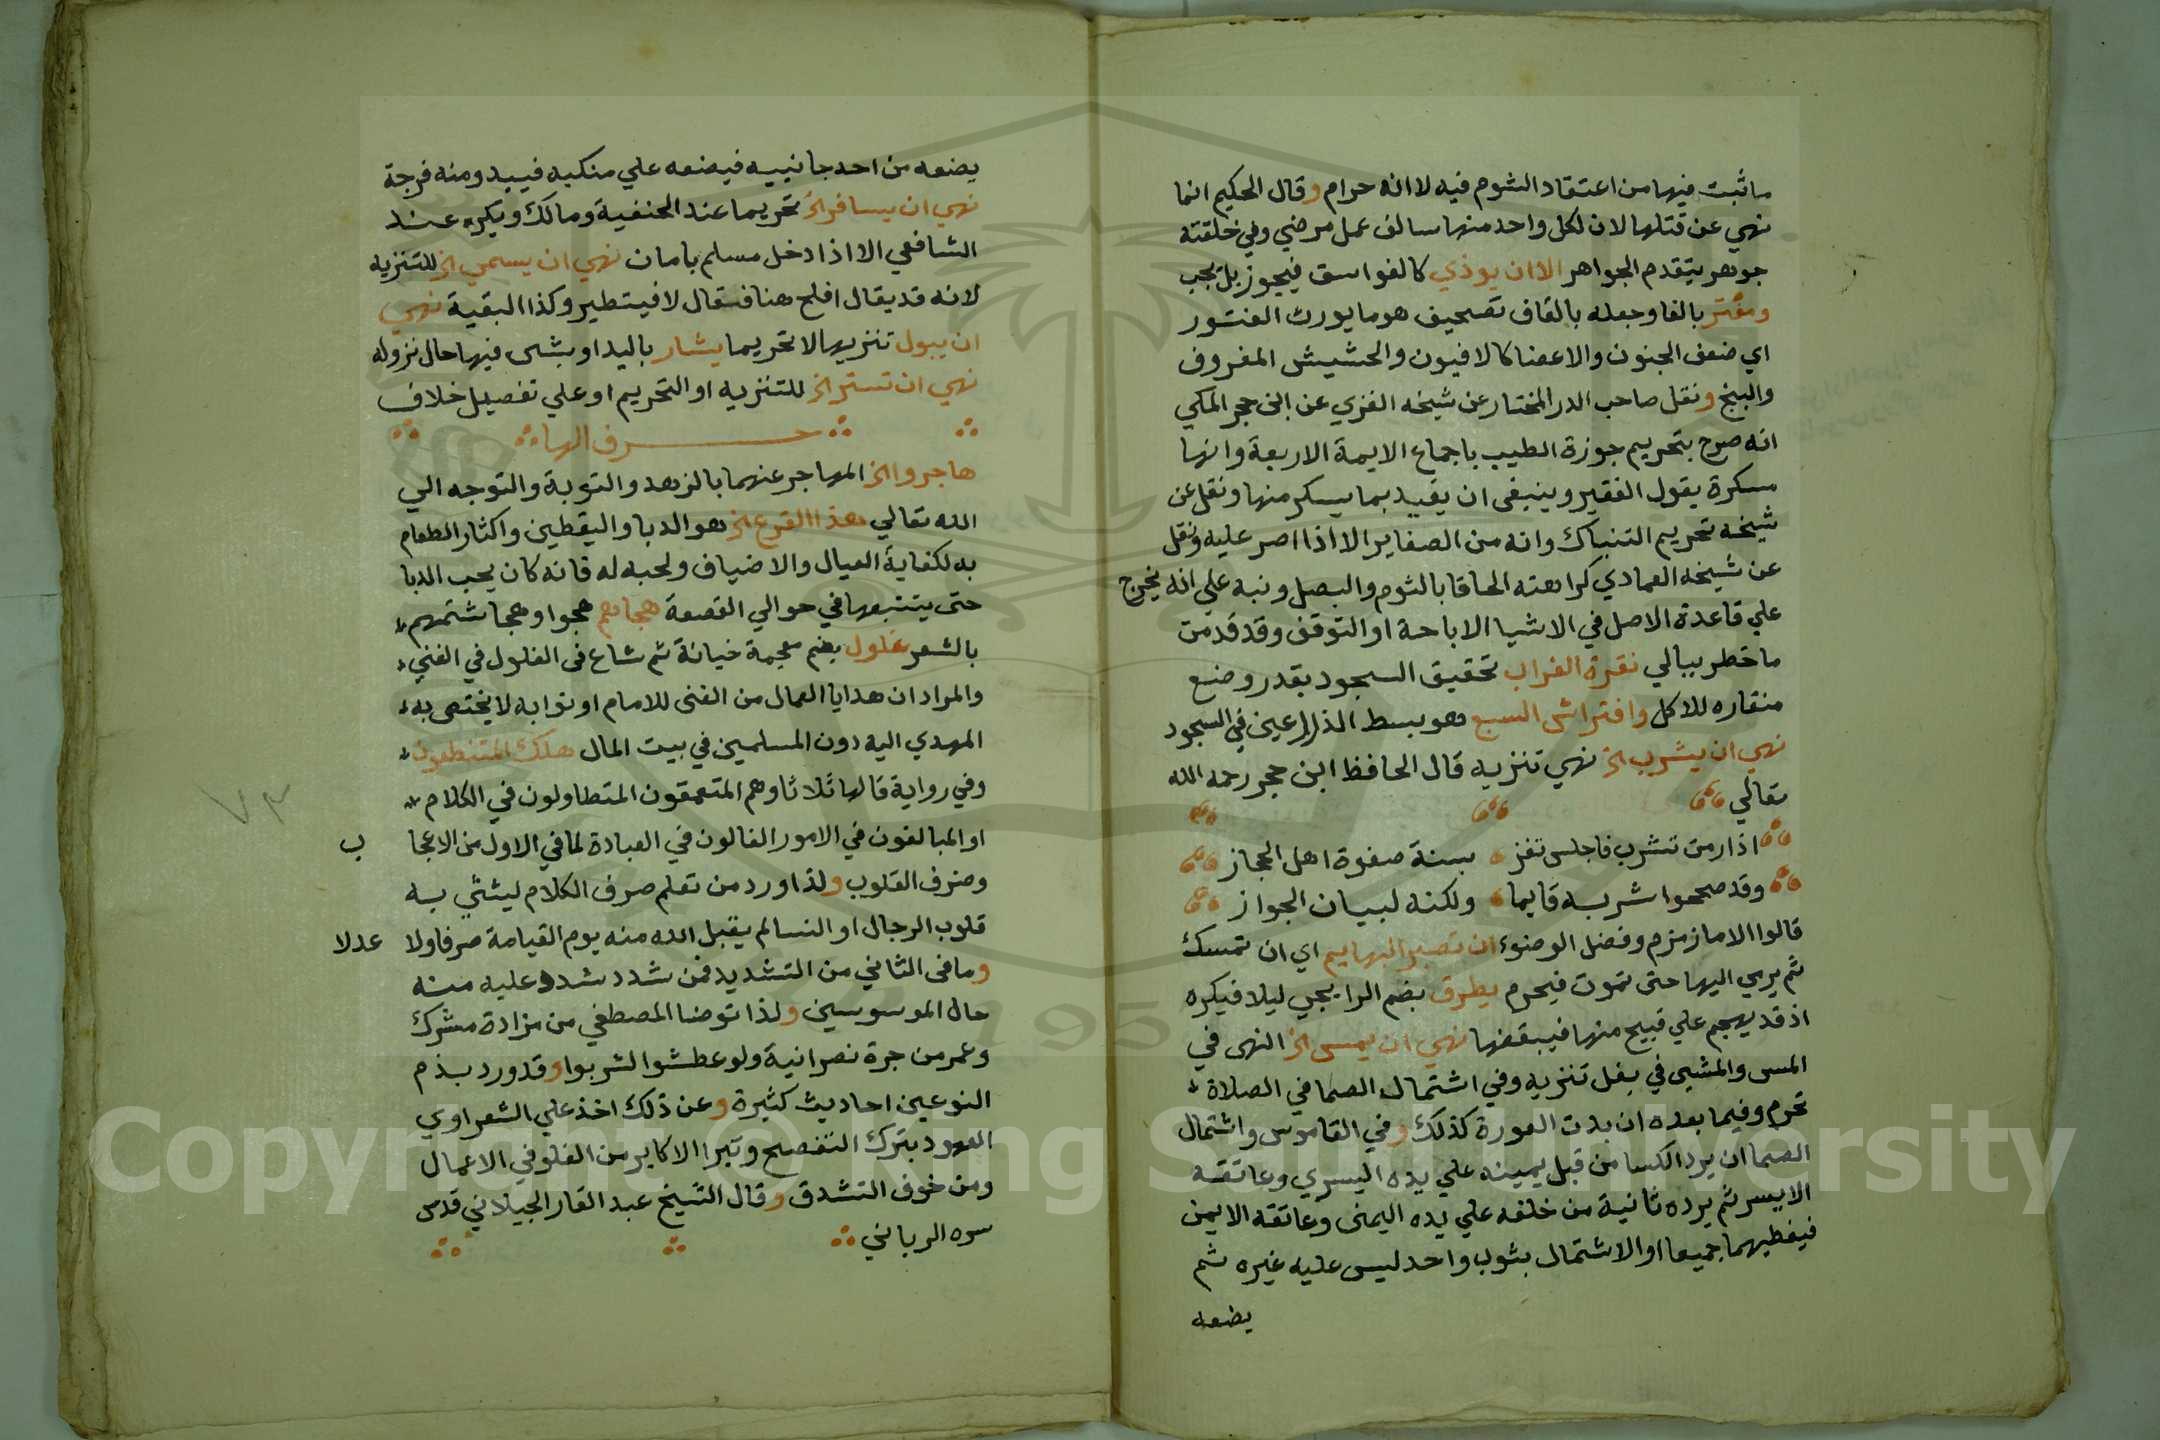 ما ثبت فيها من اعتقاد الشوم فيه لا انه حرام وقال الحكيم انما
نهي عن قتلها لان لكل واحد منها سالف عمل مرضي وفي خلقته
جوهر يتقدم الجواهر الا ان يوذي كالفواسق فيجوز بل يجب
ومفتر بالفا وجعله بالقاف تصحيف هو ما يورث الفتور
اي ضعف الجنون والاعضا كالافيون والحشيش المفروف
والبنج ونقل صاحب الدر المختار عن شيخه الغزي عن ابن حجر المكي
انه صرح بتحريم جوزة الطيب باجماع الايمة الاربعة وانها
مسكرة يقول الفقير وينبغي ان يقيد بما يسكر منها ونقل عن
شيخه تحريم التنباك وانه من الصغاير الا اذا اصر عليه ونقل
عن شيخه العمادي كراهته الحاقا بالثوم والبصل ونبه علي انه يخرج
علي قاعدة الاصل في الاشيا الاباحة او التوقف وقد قدمت
ما خطر ببالي نقرة الغراب تحقيق السجود بقدر وضع
منقاره للاكل وافتراش السبع هو بسط الذراعين في السجود
نهي ان يشرب الخ نهي تنزيه قال الحافظ ابن حجر رحمه الله
تعالي
اذا رمت تشرب فاجلس تفز بسنة صفوة اهل الحجاز
وقد صححوا شربه قايما ولكنه لبيان الجواز
قالوا الا ماز مزم وفضل الوضوء ان تصبر البهايم اي ان تمسك
ثم يرمي اليها حتى تموت فيحرم يطرق بضم الرا يجي ليلا فيكره
اذ قد يهجم علي قبيح منها فيبغضها نهي ان يمس الخ النهي في
المس والمشي في نعل تنزيه وفي اشتمال الصما في الصلاة
تحرم وفيما بعده ان بدت العورة كذلك وفي القاموس واشتمال
الصما ان يرد الكسا من قبل يمينه علي يده اليسري وعاتقه
الايسر ثم يرده ثانية من خلفه علي يده اليمنى وعاتقه الايمن
فيغطيهما جميعا او الاشتمال بثوب واحد ليس عليه غيره ثم
يضعه
يضعه من احد جانبيه فيضعه علي منكبه فيبدو منه فرجة
نهي ان يسافر الخ تحريما عند الحنفية ومالك ويكره عند
الشافعي الا اذا دخل مسلم بامان نهي ان يسمي الخ للتنزيه
لانه قد يقال افلح هنا فيقال لا فيتطير وكذا البقية نهي
ان يبول تنزيها لا تحريما يشار باليد او بشى فيها حال نزوله
نهي ان تستر الخ للتنزيه او التحريم او علي تفصيل خلاف
حرف الها
هاجروا الخ المهاجر عنهما بالزهد والتوبة والتوجه الي
الله تعالي هذا القرع الخ هو الدبا واليقطين واكثار الطعام
به لكفاية العيال والاضياف ولحبه له فانه كان يحب الدبا
حتى يتتبعها في حوالي القصعة هجاهم هجوا وهجا شتمهم
بالشعر غلول بضم معجمة خيانة ثم شاع فى الغلول في الفني
والمراد ان هدايا العمال من الفنى للامام او نوابه لا يختص به
المهدي اليه دون المسلمين في بيت المال هلك المتنطعون
وفي رواية قالها ثلاثا وهم المتعمقون المتطاولون في الكلام
او المبالغون في الامور الغالون في العبادة لما في الاول من الاعجا
ب
وصرف القلوب ولذا ورد من تعلم صرف الكلام ليثني به
قلوب الرجال او النسا لم يقبل الله منه يوم القيامة صرفا ولا
عدلا
وما فى الثاني من التشديد فمن شدد شدد عليه منه
حال الموسوسين ولذا توضا المصطفي من مزادة مشرك
وعمر من جرة نصرانية ولو عطشوا لشربوا وقد ورد بذم
النوعين احاديث كثيرة وعن ذلك اخذ علي الشعراوي
العهود بترك التفصح وتبرا الاكابر من الغلو في الاعمال
ومن خوف التشدق وقال الشيخ عبد القار الجيلاني قدس
سره الرباني
٧٣
1957
Copyright © King Saud University